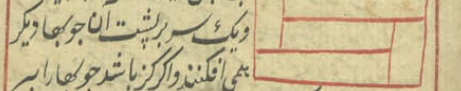 ویک سر بر پشت آن جو بها دیکر
همی افکنند واکر کژ باشد جو بها را بر